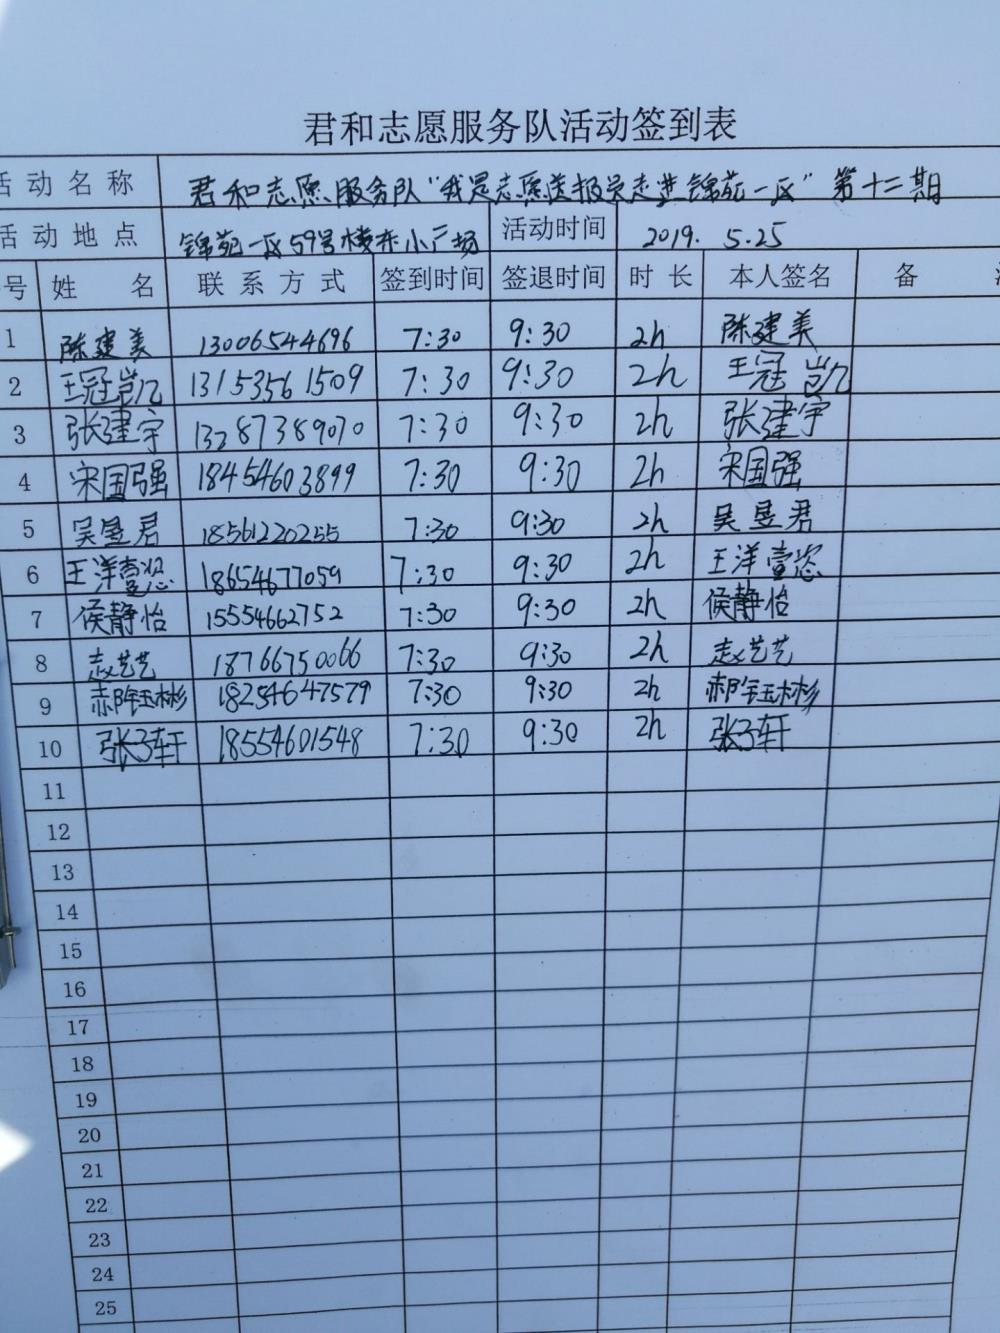 君和志愿服务队活动签到表
活动名称 君和志愿服务队"我是志愿送报员走进锦苑一区"第十二期
活动地点 锦苑一区59号楼东小广场 活动时间 2019. 5.25
号 姓 名 联系方式 签到时间 签退时间 时长 本人签名 备
1 陈建美 13006544696 7:30 9:30 2h 陈建美
2 王冠凯 13153561509 7:30 9:30 2h 王冠凯
3 张建宇 13287389070 7:30 9:30 2h 张建宇
4 宋国强 18454603899 7:30 9:30 2h 宋国强
5 吴昱君 18561220255 7:30 9:30 2h 吴昱君
6 王洋壹恣 18654677059 7:30 9:30 2h 王洋壹恣
7 侯静怡 15554662752 7:30 9:30 2h 侯静怡
8 赵艺艺 18766750066 7:30 9:30 2h 赵艺艺
9 郝钰彬 18254647579 7:30 9:30 2h 郝钰彬
10 张子轩 18554601548 7:30 9:30 2h 张子轩
11
12
13
14
15
16
17
18
19
20
21
22
23
24
25